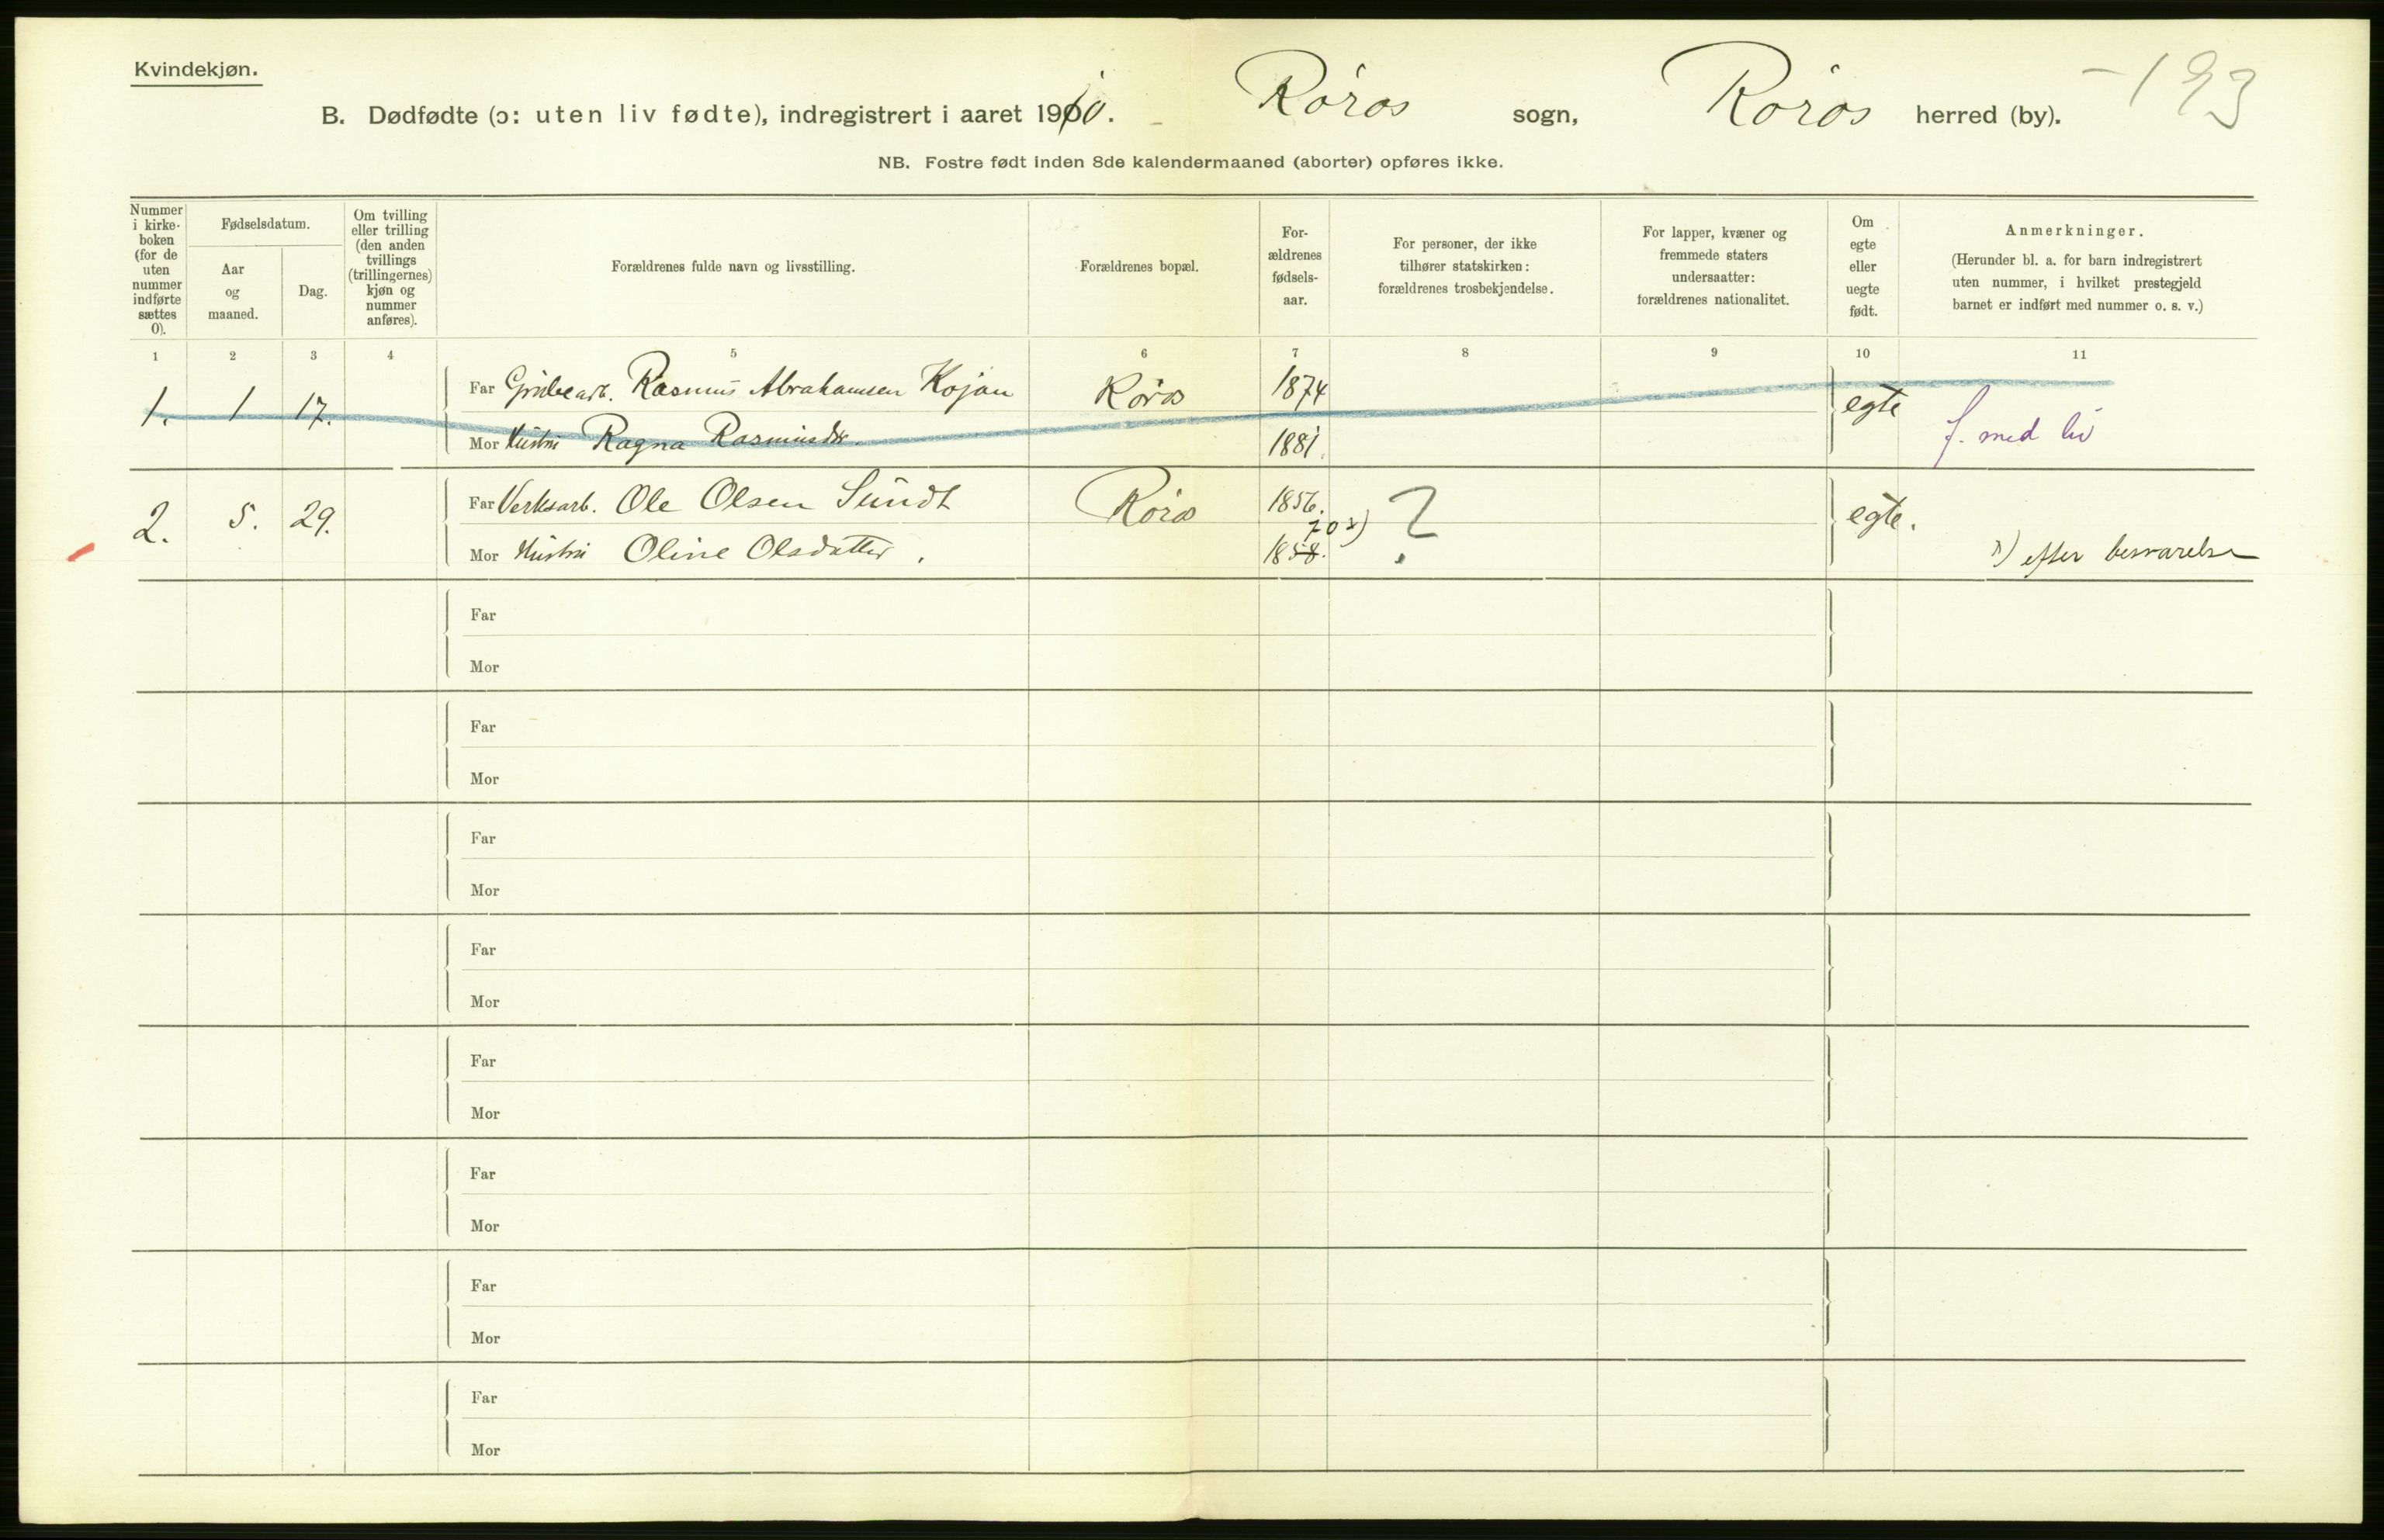 Kvindekjøn.
B. Dødfødte (ɔ: uten liv fødte), indregistrert i aaret 1910. Røros sogn, Røros herred (by). -193
NB. Fostre født inden 8de kalendermaaned (aborter) opføres ikke.
Nummer i kirke-boken (for de uten nummer indførte sættes 0).
Fødselsdatum.
Aar og maaned.
Dag.
Om tvilling eller trilling (den anden tvillings (trillingernes) kjøn og nummer anføres).
Forældrenes fulde navn og livsstilling.
Forældrenes bopæl.
For-ældrenes fødsels-aar.
For personer, der ikke tilhører statskirken: forældrenes trosbekjendelse.
For lapper, kvæner og fremmede staters undersaatter: forældrenes nationalitet.
Om egte eller uegte født.
Anmerkninger.
(Herunder bl. a. for barn indregistrert uten nummer, i hvilket prestegjeld barnet er indført med nummer o. s. v.)
1 2 3 4 5 6 7 8 9 10 11
1. 1 17. Far Grubearb. Rasmus Abrahamsen Kojan Røros 1874 egte
Mor Hustru Ragna Rasmusdtr. 1881. f. med liv
2. 5. 29. Far Verksarb. Ole Olsen Sundt Røros 1856. ? egte.
70 x)
Mor Hustru Oline Olsdatter. 1858. x) efter besvarelse
Far
Mor
Far
Mor
Far
Mor
Far
Mor
Far
Mor
Far
Mor
Far
Mor
Far
Mor